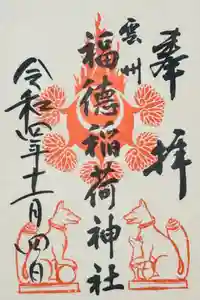 奉拝
雲州
福徳稲荷神社
令和四年十一月四日